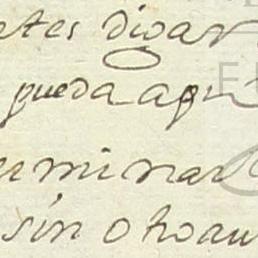 etes digan
pueda aqu
erminar
sin otro au